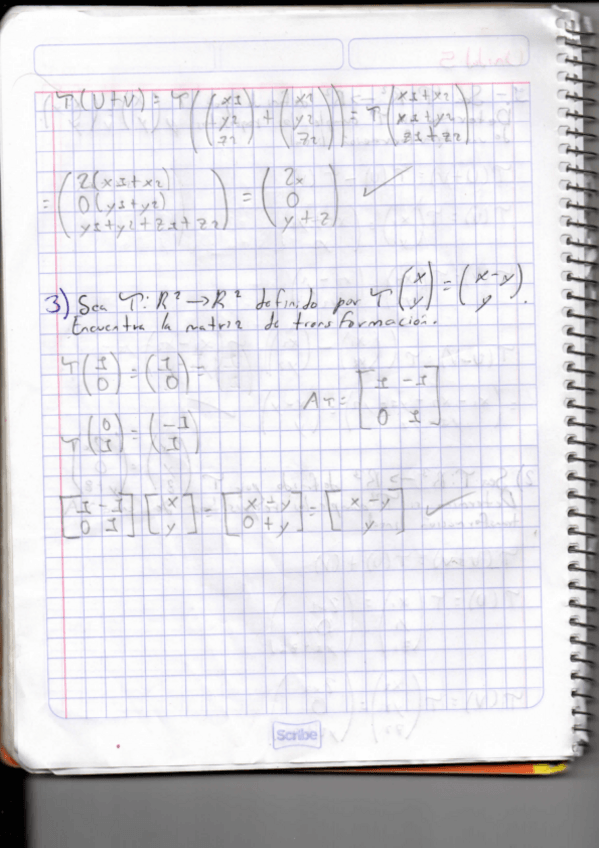 T(U+V) = T((x1 y2 z2) + (x2 y2 z2)) = T(x1+x2 x1+y2 z1+z2)
= (2(x1+x2) 0(y1+y2) y1+y2+z1+z2) = (2x 0 y+z) ✓
3) Sea T: R² → R² definido por T(x y) = (x-y y).
Encuentra la matriz de transformación.
T(1 0) = (1 0) =
AT = [1 -1 0 1]
T(0 1) = (-1 1)
[1 -1 0 1] [x y] = [x-y 0+y] = [x-y y] ✓
Scribe